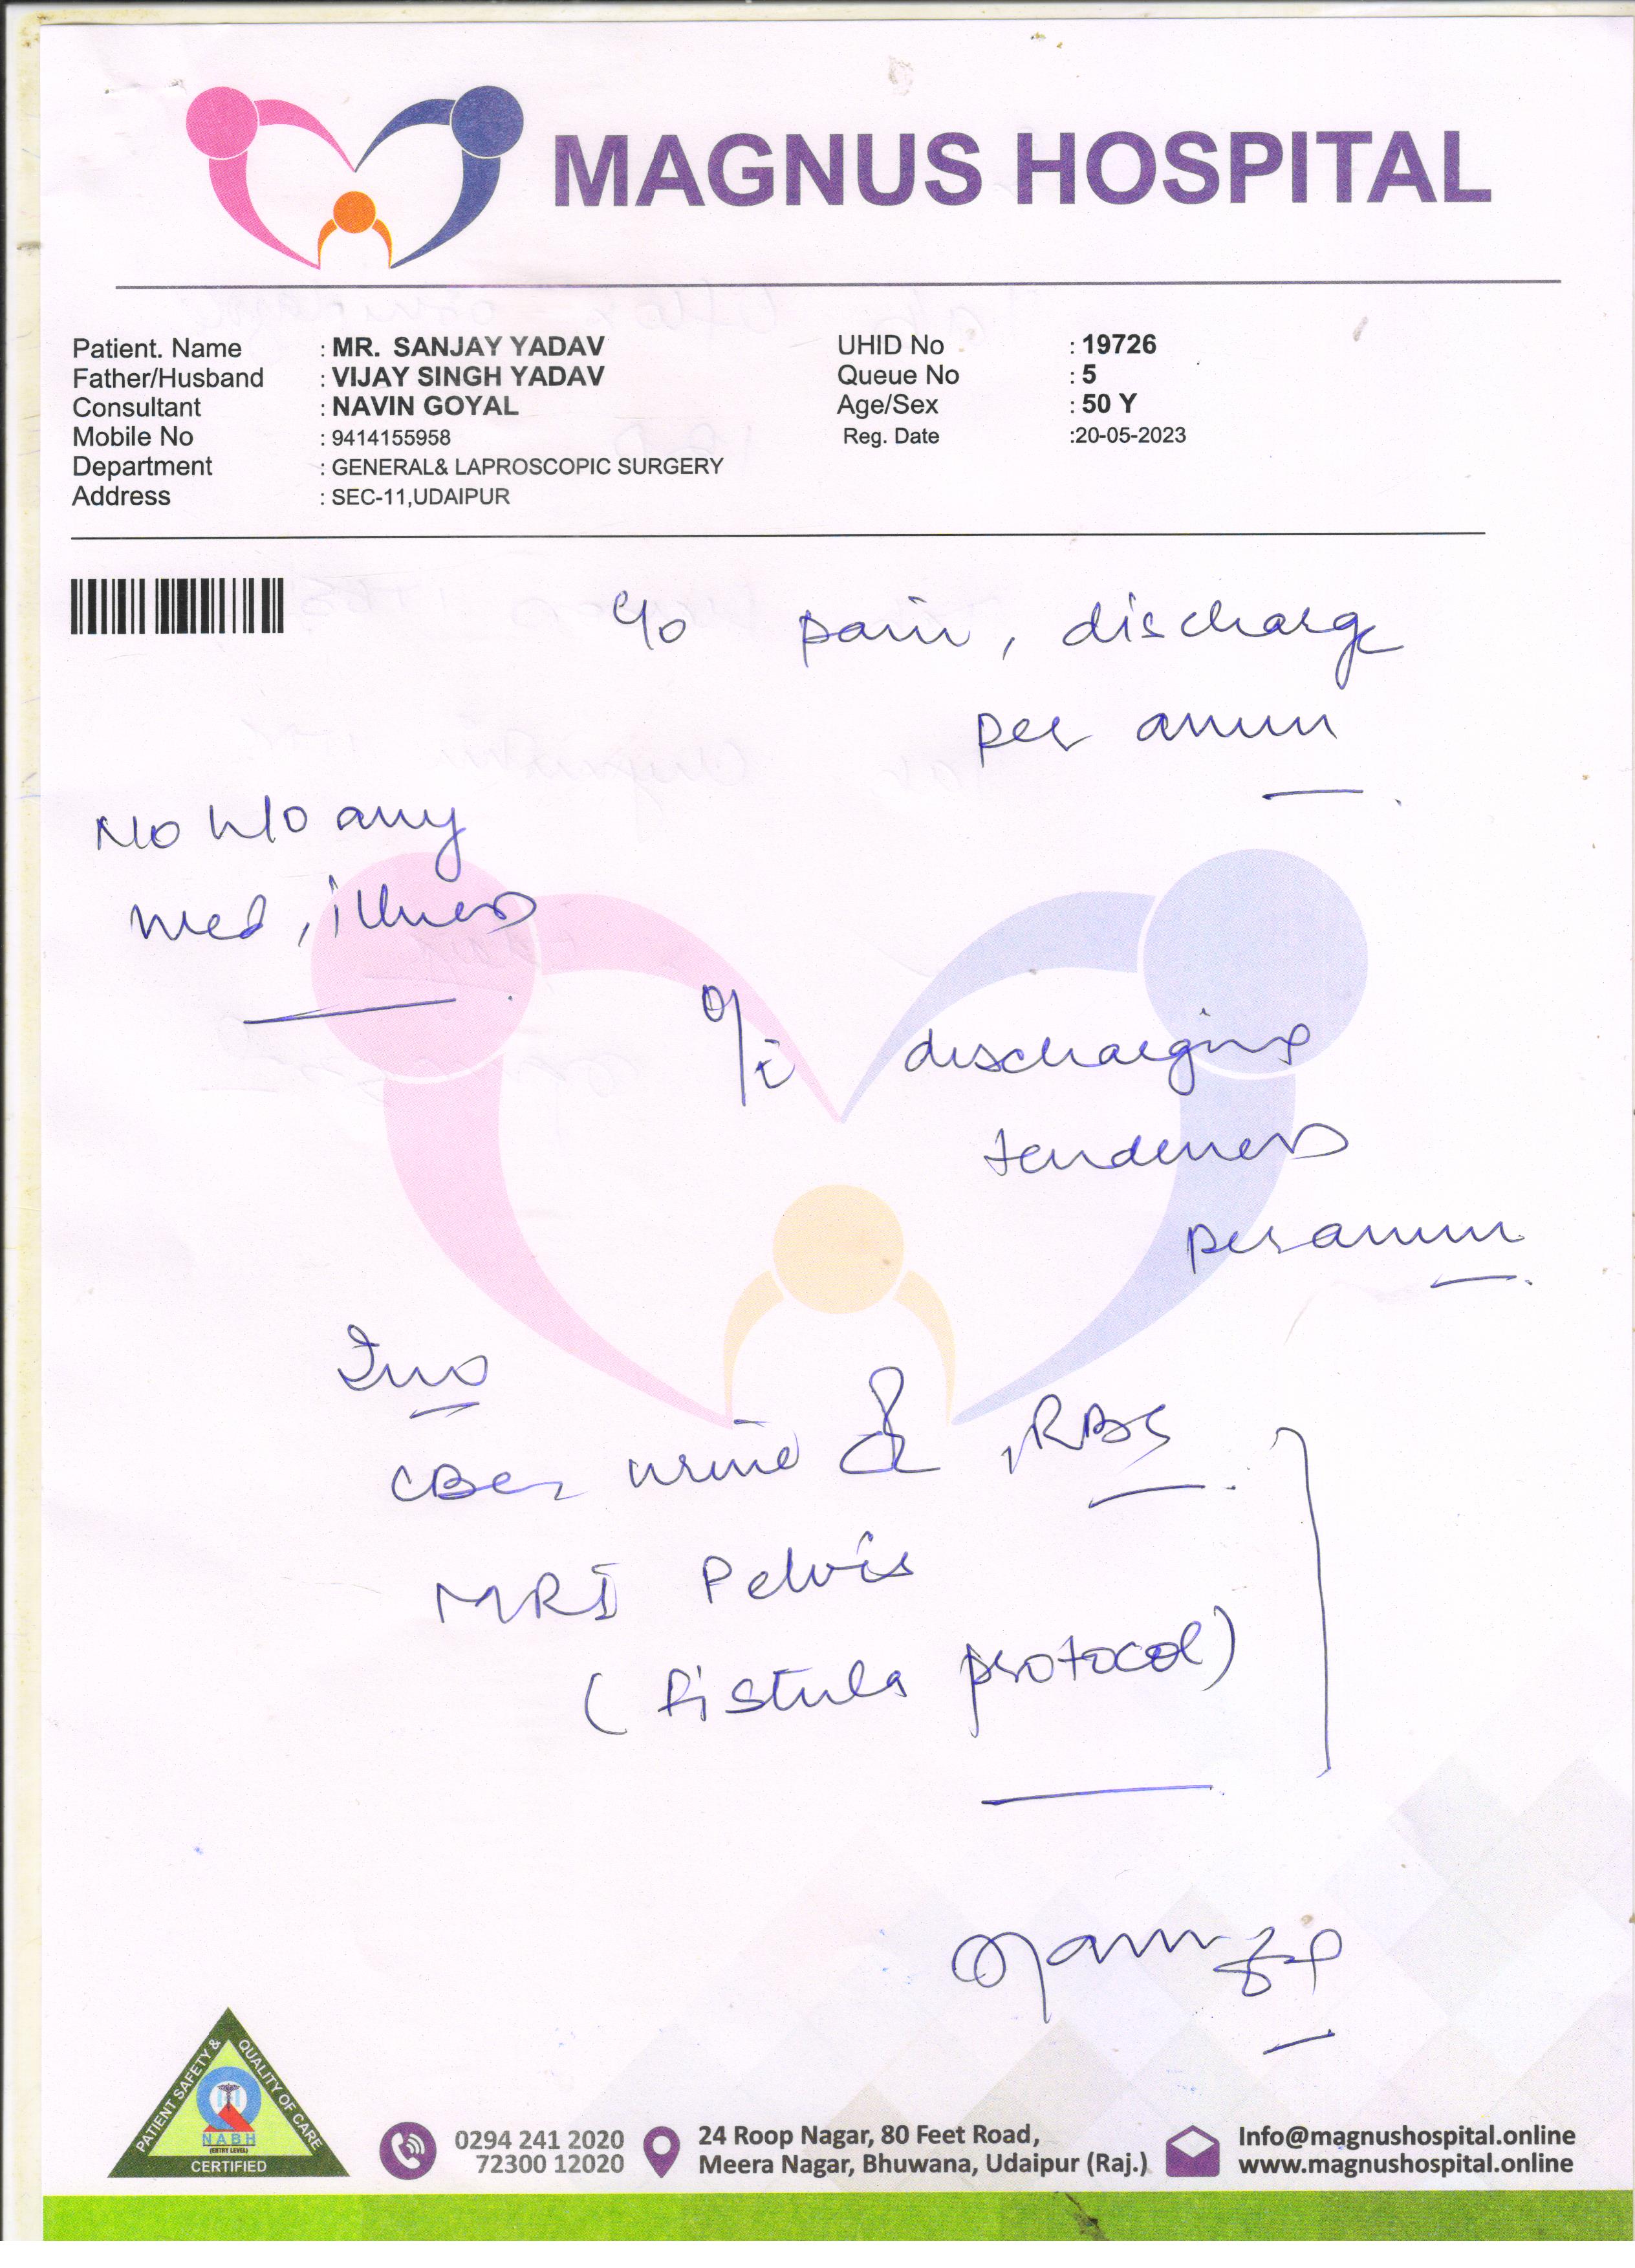 MAGNUS HOSPITAL
Patient. Name : MR. SANJAY YADAV
Father/Husband : VIJAY SINGH YADAV
Consultant : NAVIN GOYAL
Mobile No : 9414155958
Department : GENERAL& LAPROSCOPIC SURGERY
Address : SEC-11,UDAIPUR
UHID No : 19726
Queue No : 5
Age/Sex : 50 Y
Reg. Date :20-05-2023
c/o pain, discharge
per anum
No h/o any
med, illness
o/e discharging
tenderness
per anum
Inv
CBC, urine , RBS
MRI Pelvis
(fistula protocol)
PATIENT SAFETY & QUALITY OF CARE
NABH
(ENTRY LEVEL)
CERTIFIED
0294 241 2020
72300 12020
24 Roop Nagar, 80 Feet Road,
Meera Nagar, Bhuwana, Udaipur (Raj.)
Info@magnushospital.online
www.magnushospital.online